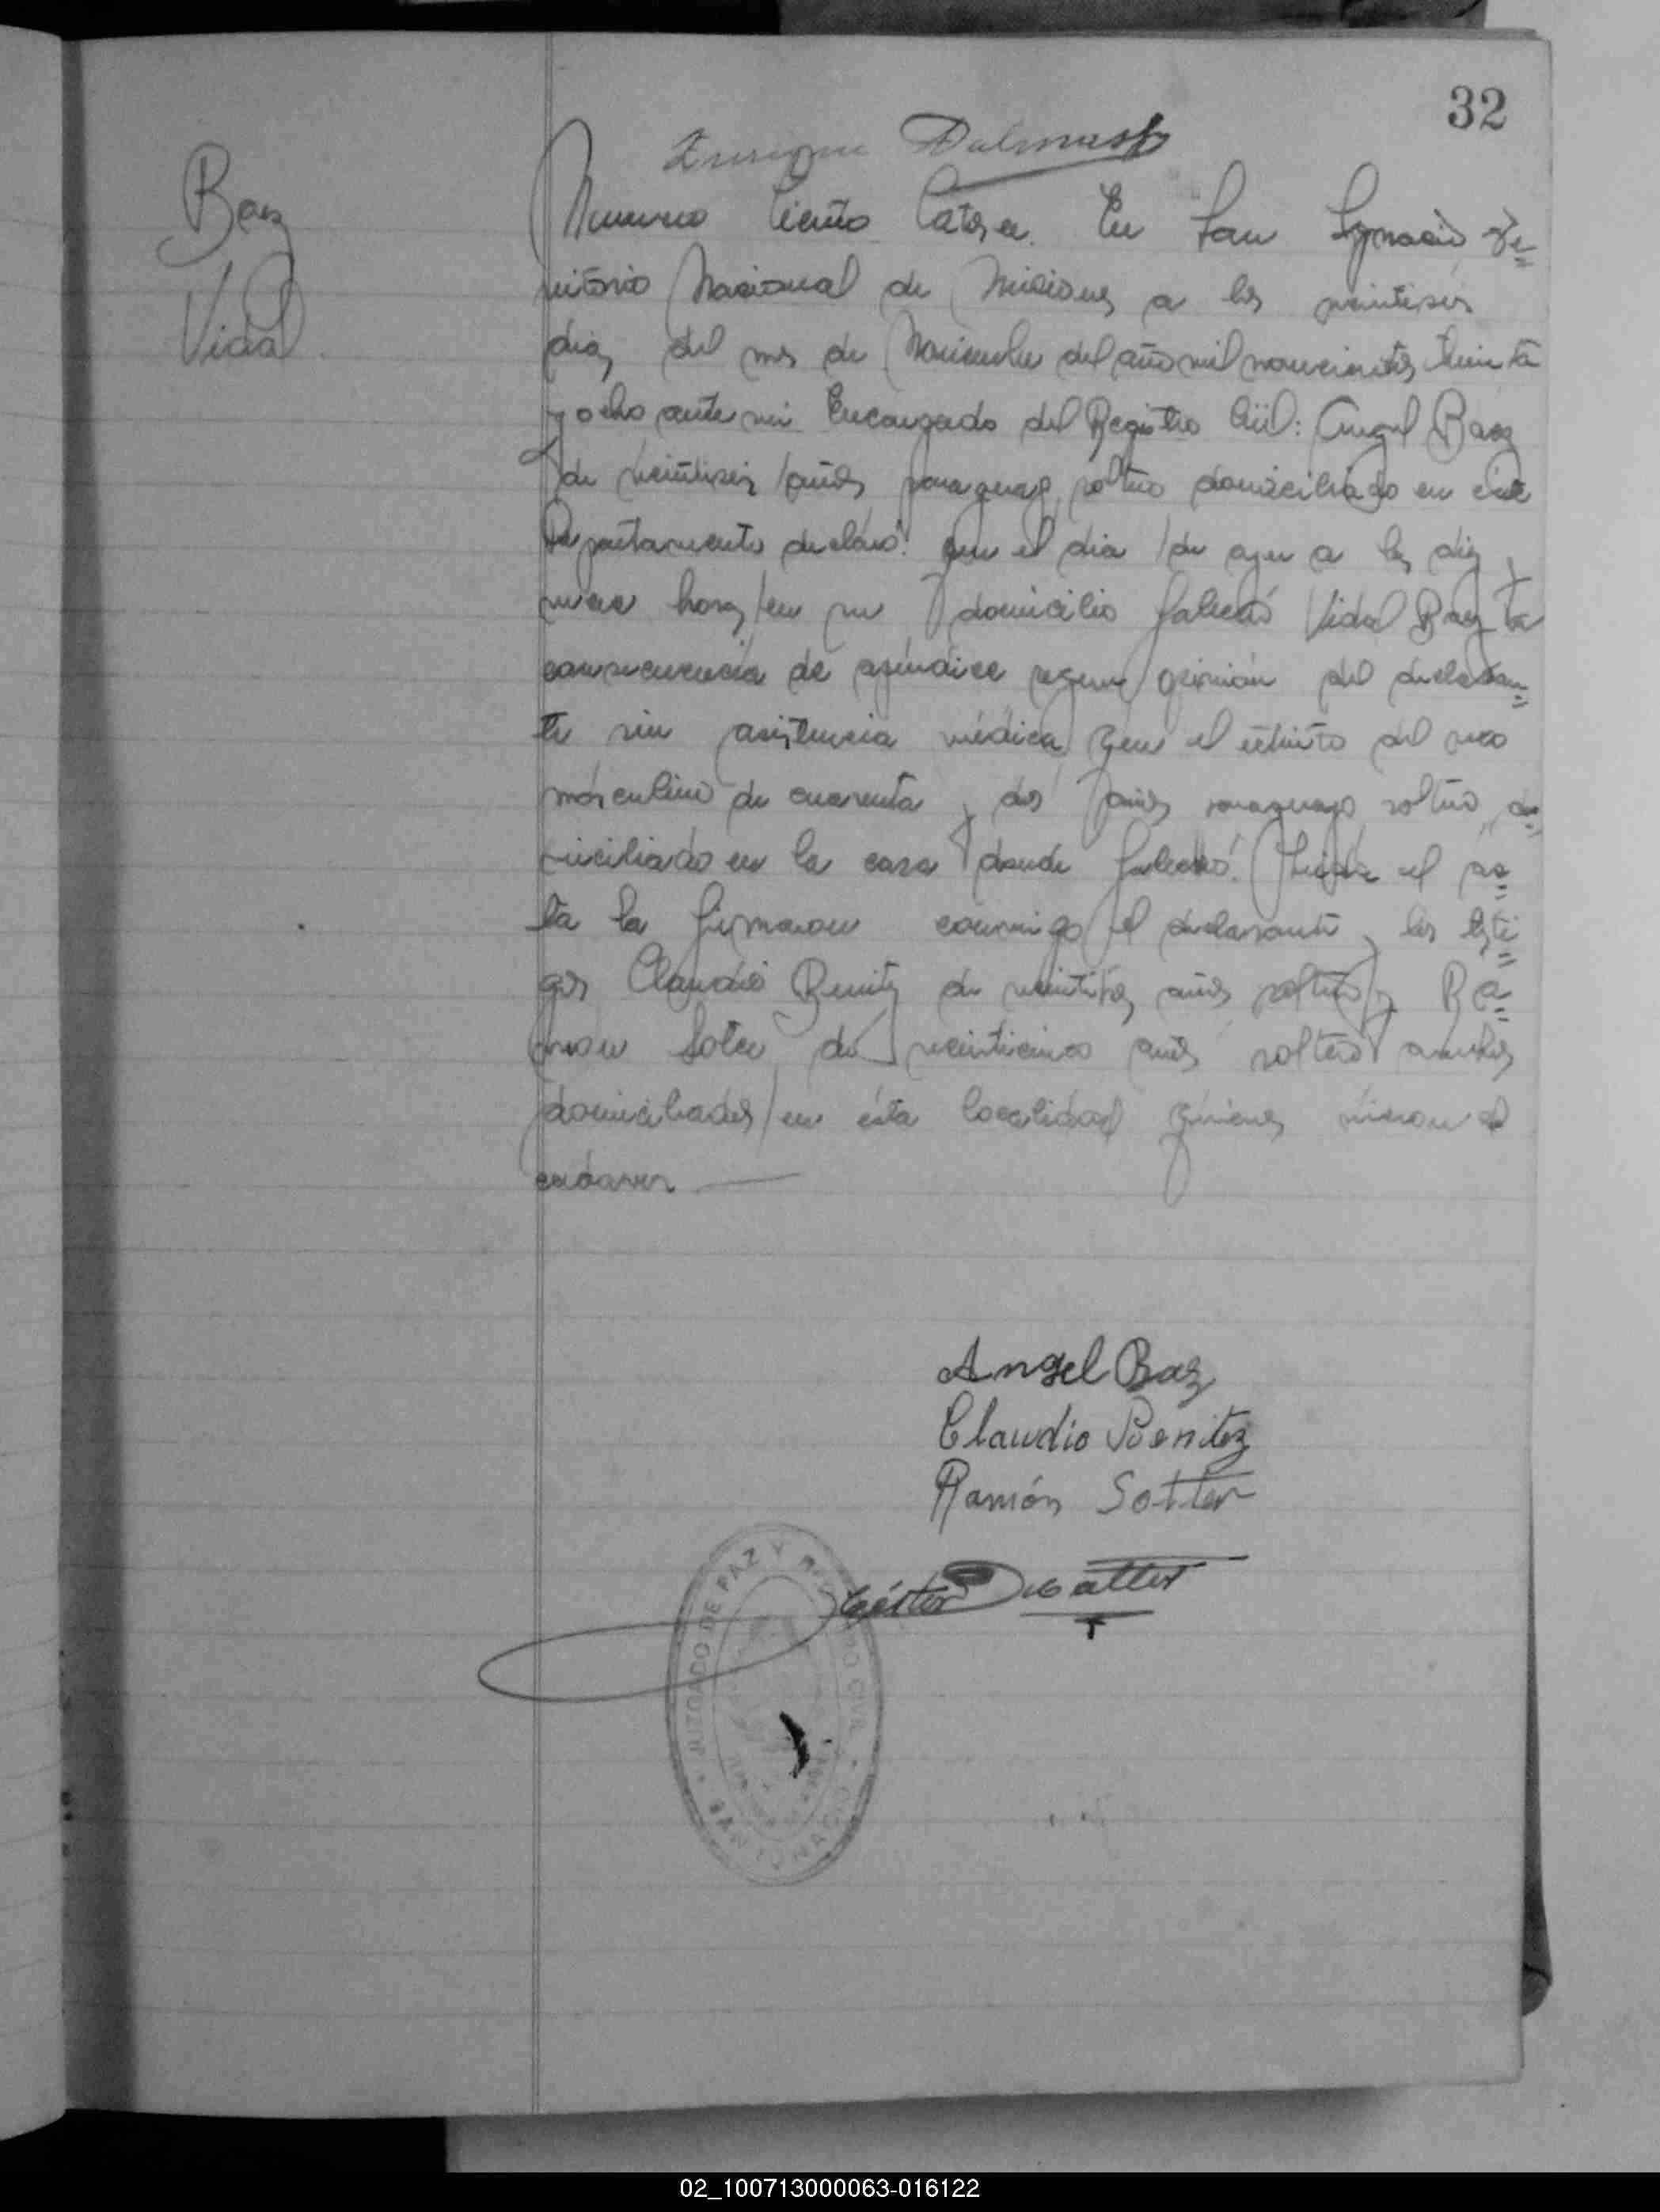 32
Enrique Dalmast
Baez
Vidal.
Numero Ciento Catorce. En San Ygnacio, Te=
rritorio Nacional de Misiones a los veintiseis
dias del mes de Noviembre del año mil novecientos treinta
y ocho ante mi Encargado del Registro Civil: Angel Baez
de veintiseis años, paraguayo, soltero domiciliado en este
Departamento declaró: que el dia de ayer a las diez y
nueve horas en su domicilio falleció Vidal Baez a
consecuencia de apéndice segun opinión del declaran=
te sin asistencia médica que el extinto del sexo
másculino de cuarenta y dos años paraguayo soltero, do=
miciliado en la casa donde falleció. Leida el ac=
ta la firmaron conmigo el declarante y los testi=
gos Claudio Benitez de años soltero y Ra=
mon Soter de veinticinco años soltero ambos
domiciliados en ésta localidad quienes vieron el
cadaver —
Angel Baz
Claudio Benitez
Ramón Sotter
Néstor
JUZGADO DE PAZ Y REGISTRO CIVIL
SAN IGNACIO
02_100713000063-016122